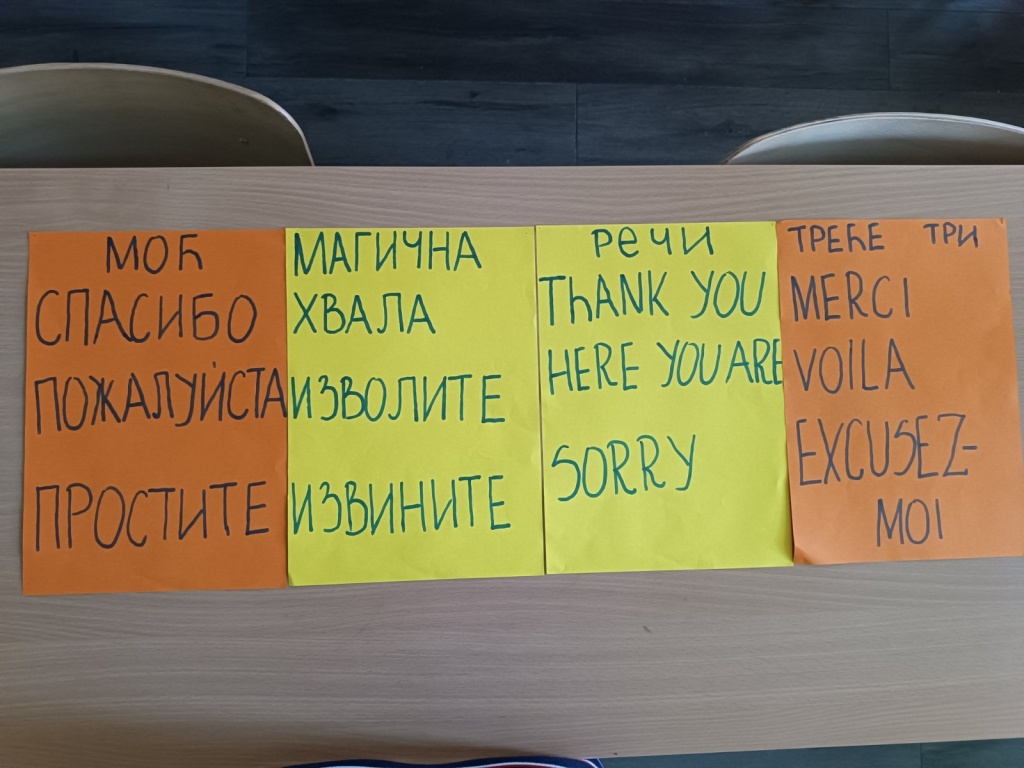 МОЋ МАГИЧНА РЕЧИ ТРЕЋЕ ТРИ
СПАСИБО ХВАЛА THANK YOU MERCI
ПОЖАЛУЙСТА ИЗВОЛИТЕ HERE YOU ARE VOILA
ПРОСТИТЕ ИЗВИНИТЕ SORRY EXCUSEZ-
MOI